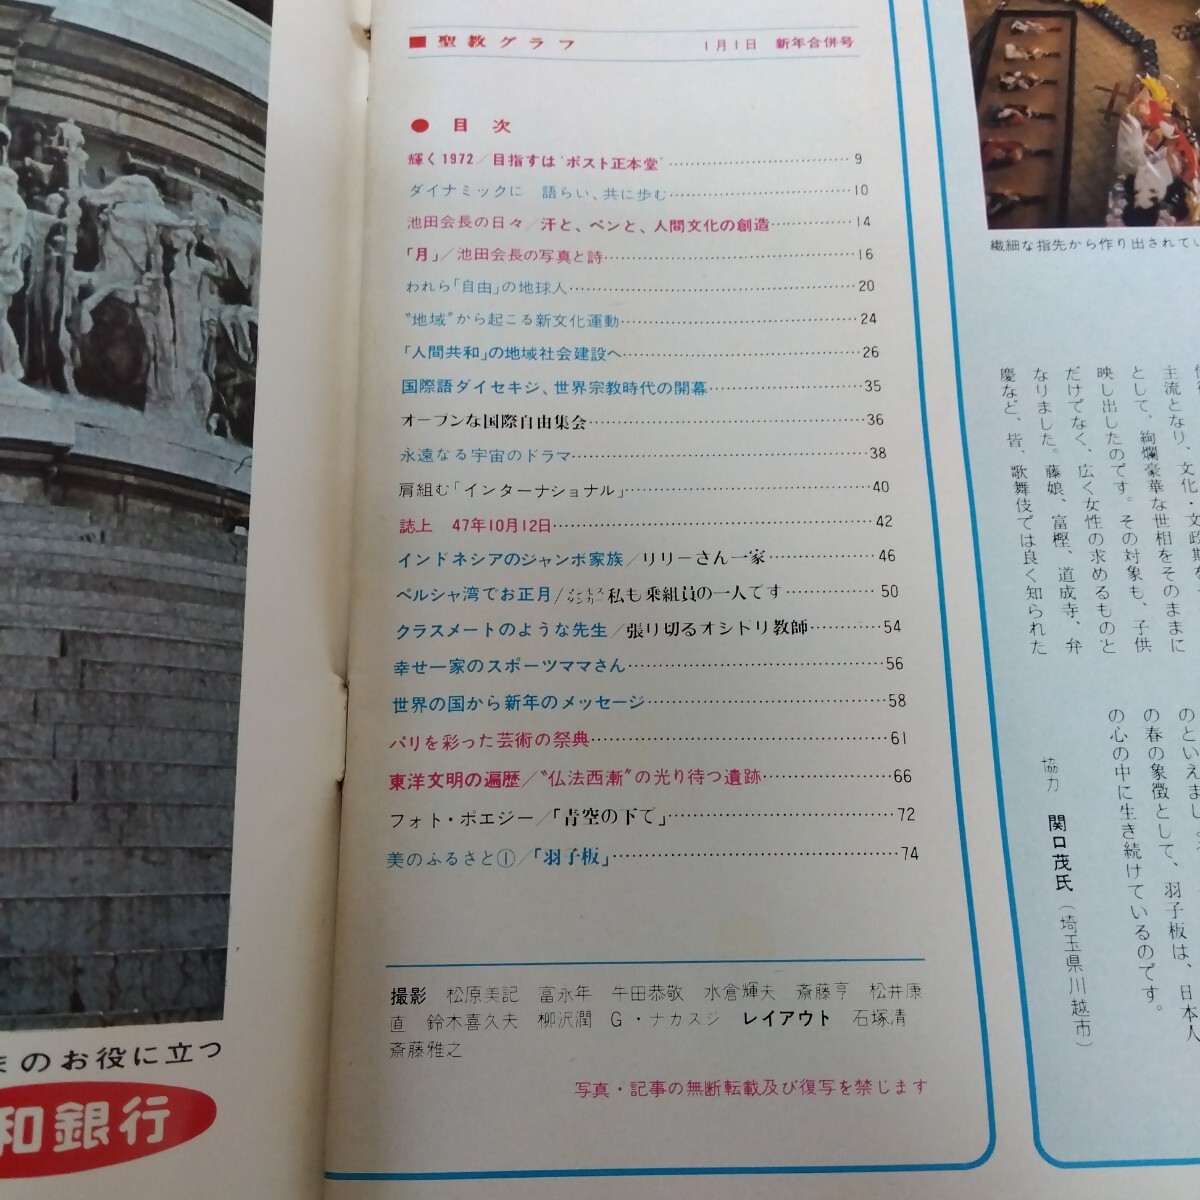 ■聖教グラフ 1月1日 新年合併号
●目次
輝く1972／目指すは‘ポスト正本堂’……9
ダイナミックに 語らい、共に歩む……10
池田会長の日々／汗と、ペンと、人間文化の創造……14
「月」／池田会長の写真と詩……16
われら「自由」の地球人……20
“地域”から起こる新文化運動……24
「人間共和」の地域社会建設へ……26
国際語ダイセキジ、世界宗教時代の開幕……35
オープンな国際自由集会……36
永遠なる宇宙のドラマ……38
肩組む「インターナショナル」……40
誌上 47年10月12日……42
インドネシアのジャンボ家族／リリーさん一家……46
ペルシャ湾でお正月／マンモスタンカー私も乗組員の一人です……50
クラスメートのような先生／張り切るオシドリ教師……54
幸せ一家のスポーツママさん……56
世界の国から新年のメッセージ……58
パリを彩った芸術の祭典……61
東洋文明の遍歴／“仏法西漸”の光り待つ遺跡……66
フォト・ポエジー／「青空の下で」……72
美のふるさと①／「羽子板」……74
撮影 松原美記 富永年 牛田恭敬 水倉輝夫 斎藤亨 松井康
直 鈴木喜久夫 柳沢潤 G・ナカスジ レイアウト 石塚清
斎藤雅之
写真・記事の無断転載及び復写を禁じます
のお役に立つ
和銀行
繊細な指先から作り出されてい
主流となり、文化・文政期を
として、絢爛豪華な世相をそのままに
映し出したのです。その対象も、子供
だけでなく、広く女性の求めるものと
なりました。藤娘、富樫、道成寺、弁
慶など、皆、歌舞伎では良く知られた
のといえまし
の春の象徴として、羽子板は、日本人
の心の中に生き続けているのです。
協力 関口茂氏（埼玉県川越市）